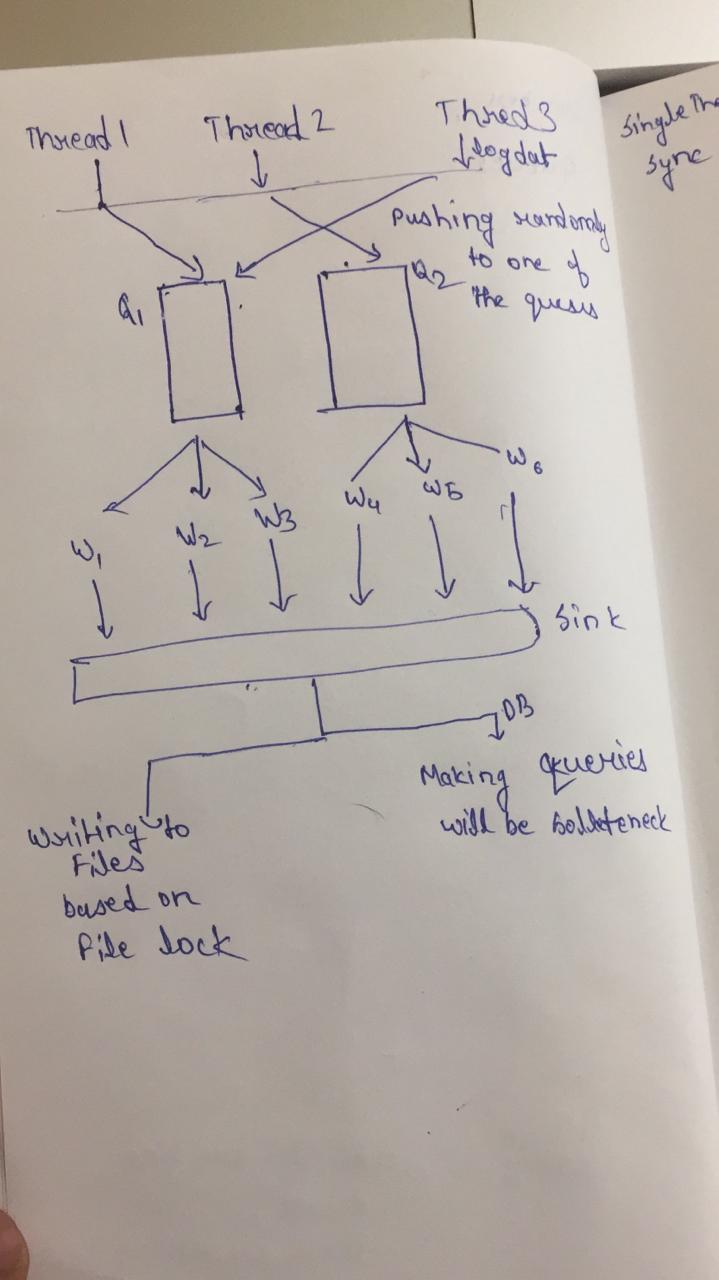 Thread 1 Thread 2 Thred 3
logdat
Single Th
Sync
Pushing randomly
to one of
the queus
Q1 Q2
W1 W2 W3 W4 W5 W6
Sink
DB
Making Queries
will be bottleneck
Writing to
Files
based on
File lock